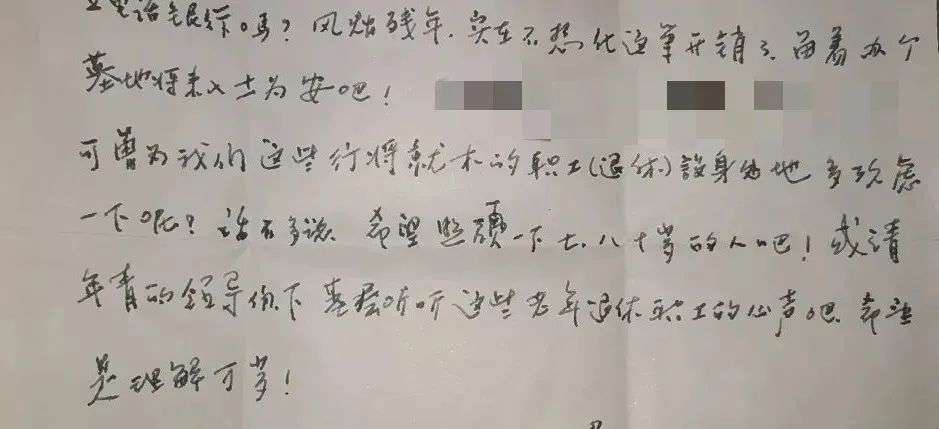 电话能行吗？风烛残年.实在不想化这笔开销了、留着办个
墓地将来入土为安吧！
可曾为我们这些行将就木的职工(退休)設身处地多攷虑
一下呢？话不多说、希望照顾一下七.八十岁的人吧！或请
年青的领导你下基层听听这些老年退休职工的心声吧.希望
是理解可岁！